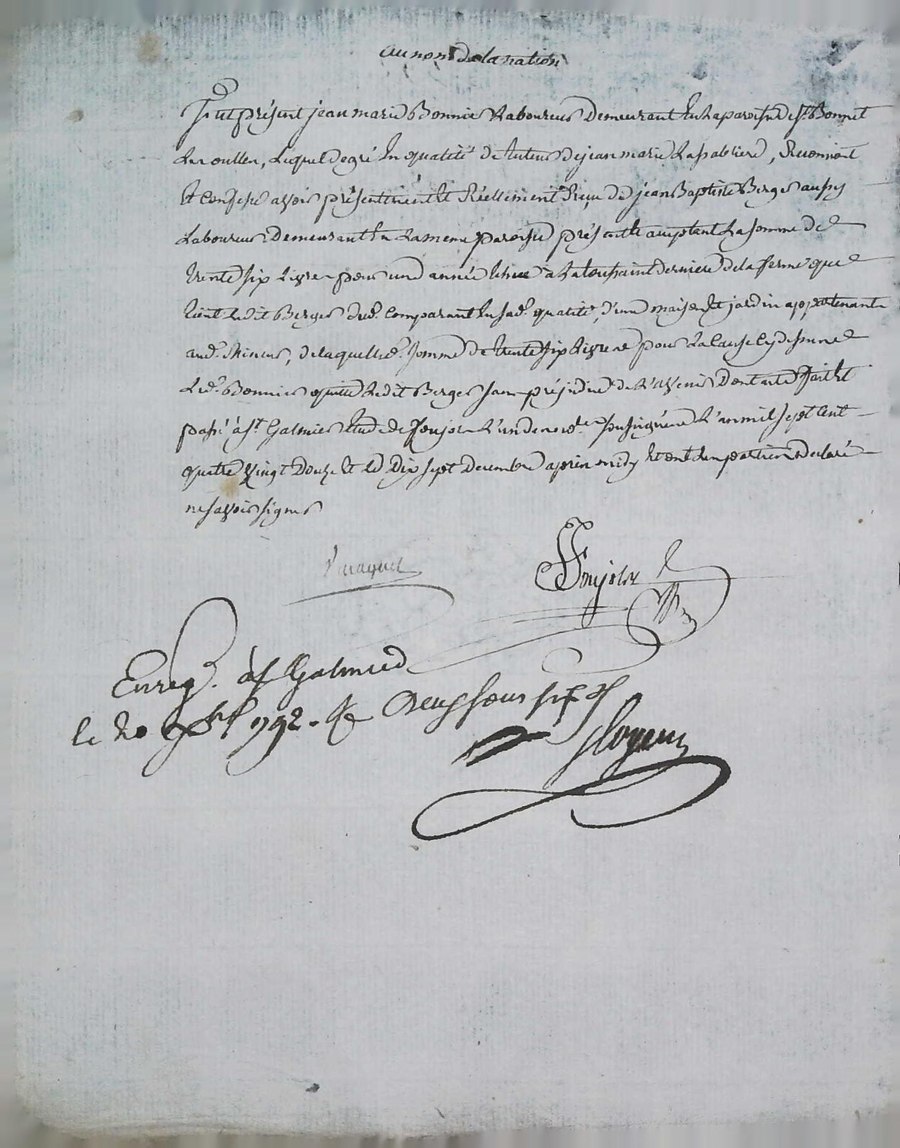 au nom de la nation
fut présent jean marie Bonnier Laboureur demeurant en la paroisse de st. Bonnet
Les oulles, Lequel de gré En qualité de tuteur de jean marie Lassablierè, Reconnoit
Et Confesse avoir présentement Et Réellement Reçu de jean Baptiste Berger aussy
Laboureur demeurant En La meme paroisse présent Et acceptant La somme de
trente six Livres pour une année Echue a La toussaint derniere de la ferme que
tient Ledit Berger dud. Comparant En sad. qualité, d'une maison Et jardin appartenants
aud. Mineur, de laquelle d. somme de trente six Livres pour La Cause Cy dessus
Led. Bonnier quitte Ledit Berger sans préjudice de L'avenir dont acte fait Et
passé à st. Galmier Etude de Poujol L'un de nos d. soussigné L'an mil sept Cent
quatre vingt Douze Et Le Dix sept Decembre apres midy Et ont Les parties declaré
ne savoir signer
Poujol
Enreg. à st Galmier
le 20 Xbre 1792. R deux sous six d.